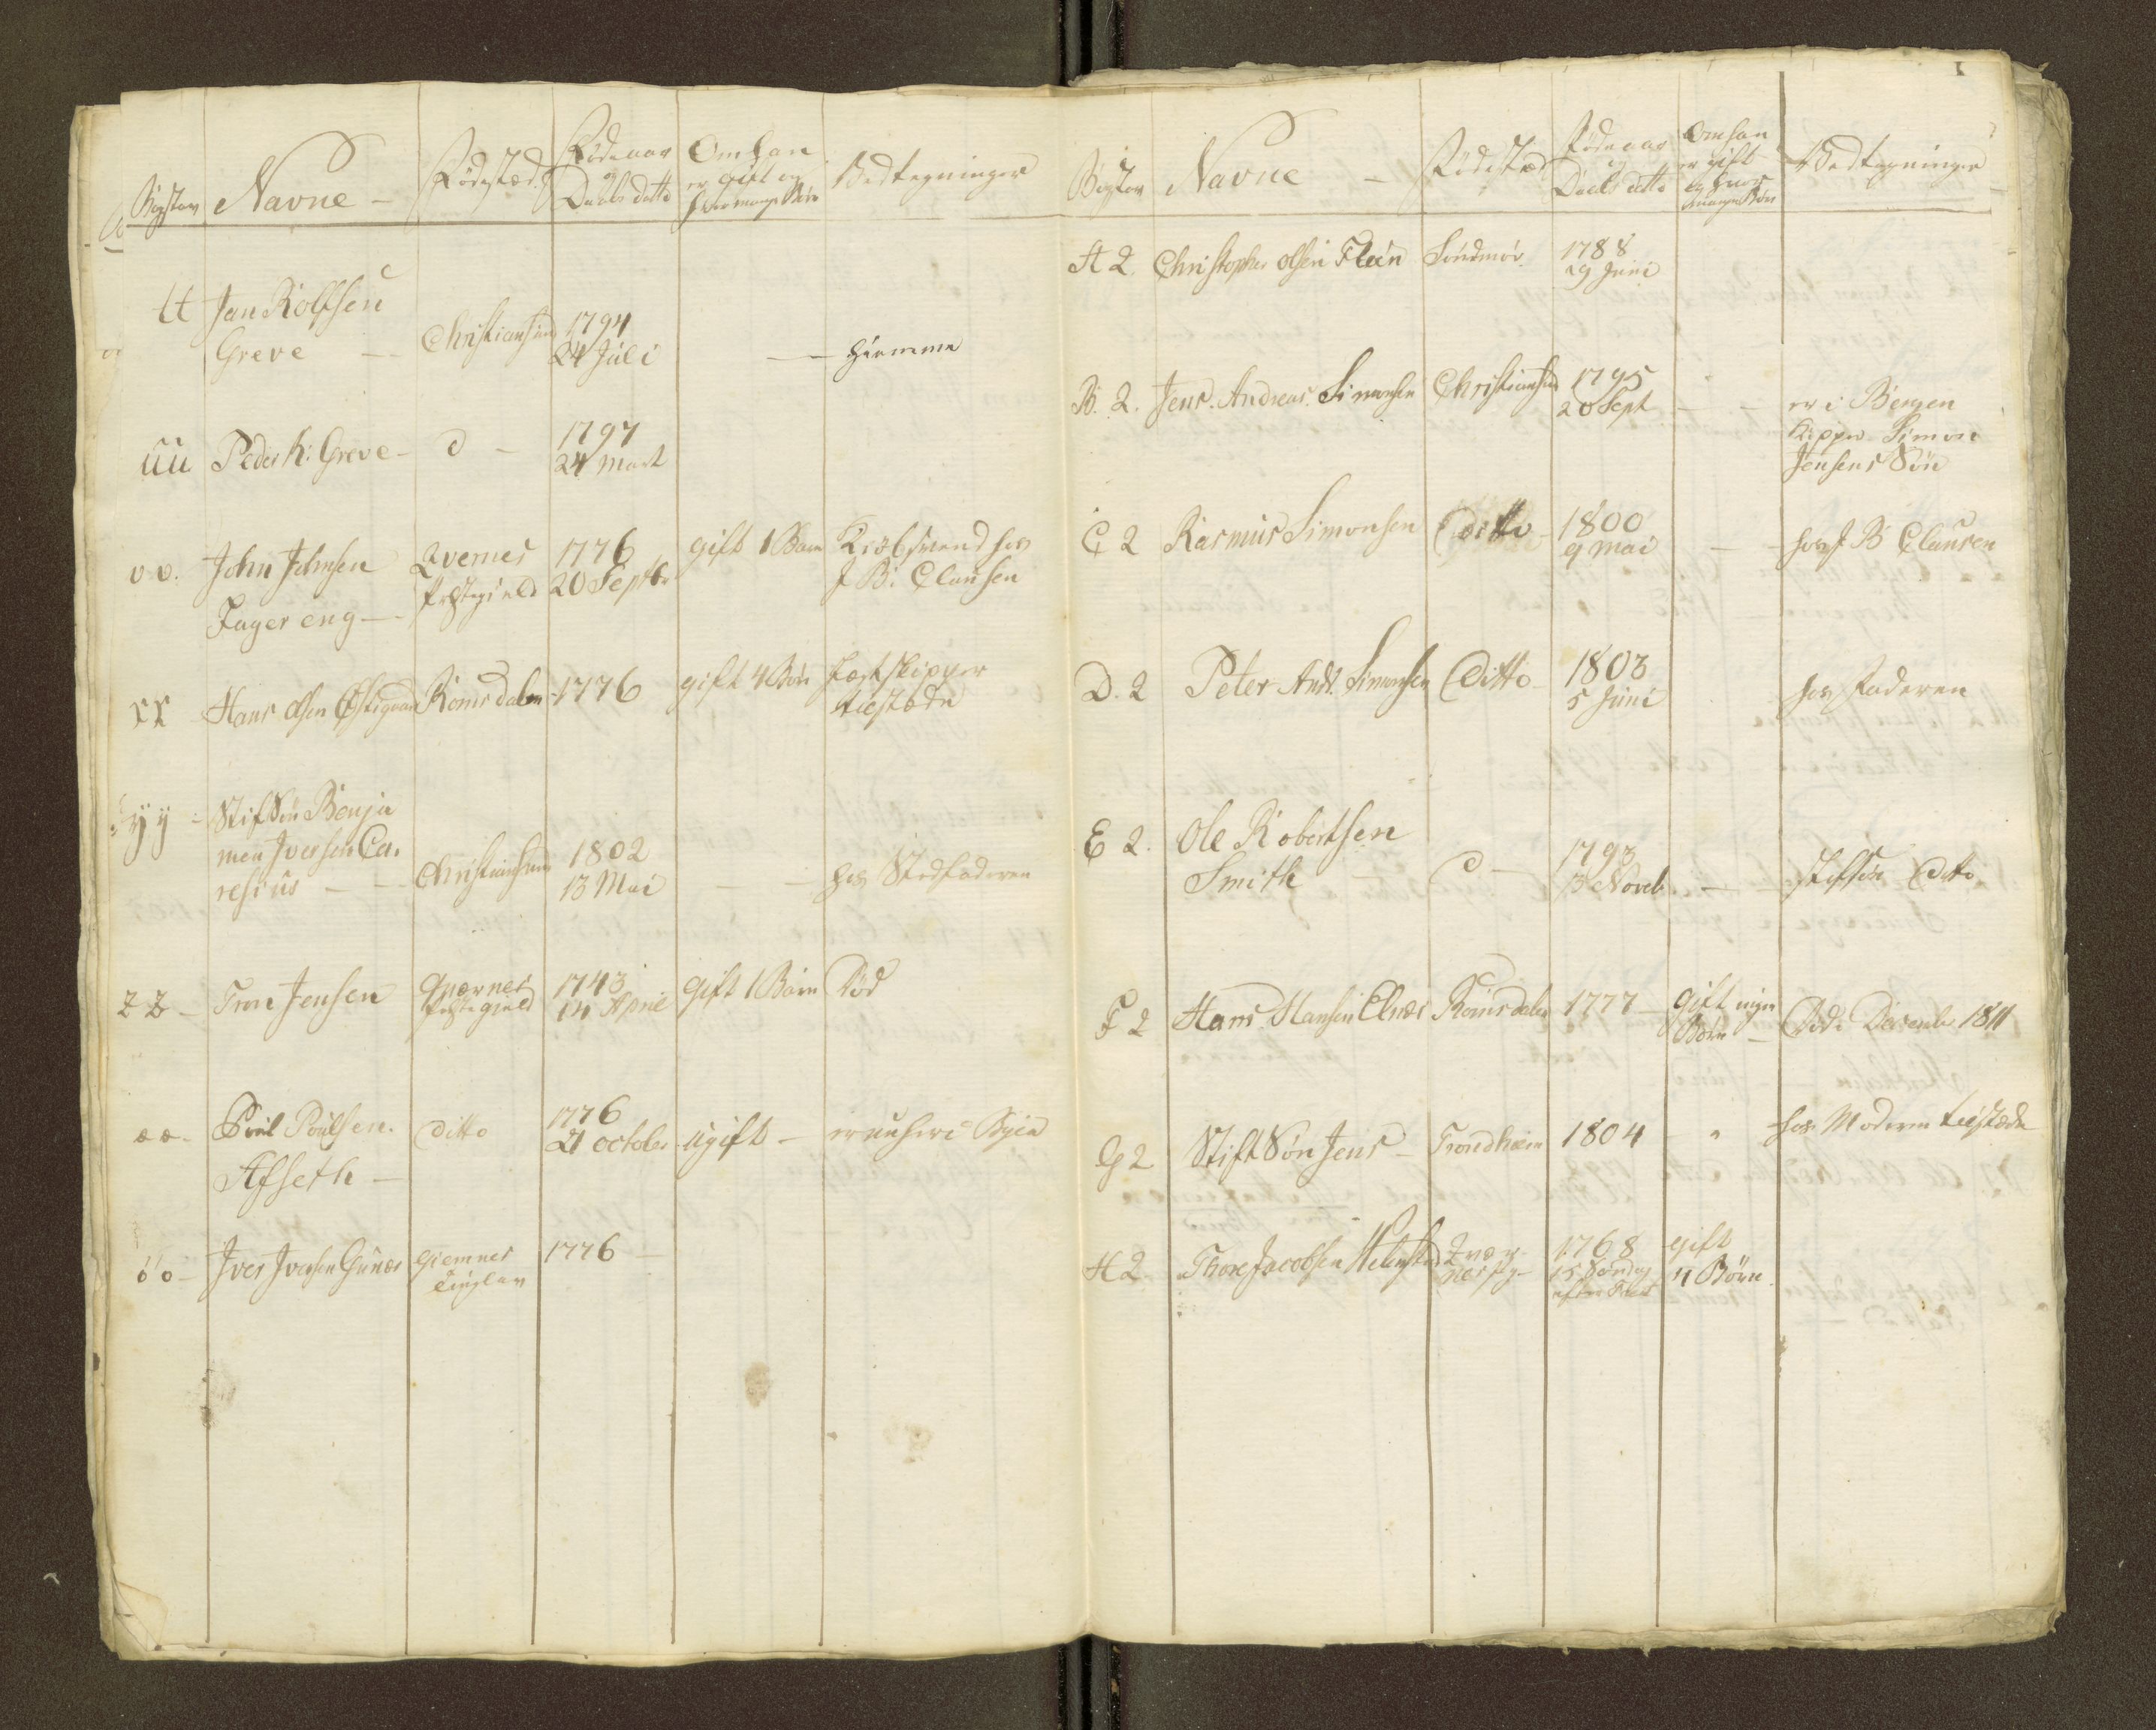 Bogstav Navne - Fødested Fødeaar og Daabs datto Om han er gift og hvor mange Børn Vedtegninger
tt Jan Rolfsen
Greve - Christiansund 1794
24 Juli - hiemme
uu Peder R: Greve - d - 1797
24 Mart
vv. John Johnsen
Fagereng - Qvernes
Præstegield 1776
20 Septbr gift 1 Barn Kiøbsvend hos
J B: Clausen
xx Hans Olsen Romsdalen 1776 gift 4 Børn
yy - Stifsøn Benja
men Iversen Ca.
resius - Christiansund 1802
13 Mai - hos Stedfaderen
zz - Tron Jensen Qværnes
Præstegield 1743
14 April Gift 1 Barn Død
ææ - Poul Poulsen.
Afseth - Ditto 1776
21 october ugift -
øø - Iver Iversen Giemnes
Tinglav 1776 -
Bogstav Navne - Fødested Fødeaar og Daabs ditto Om han er gift og hvor mange Børn Vedtegninger
A 2 Christopher Olsen Flein Søndmør 1788
29 Juni
B. 2. Jens Andreas Simonsen Christiansund 1795
20 Sept - er i Bergen
Simon
Jensens Søn
C 2 Rasmus Simonsen Ditto - 1800
9 Mai - hos J B Clausen
D. 2 Peter Andr. Simonsen Ditto - 1803
5 Juni hos Faderen
E 2. Ole Robertsen
Smith d - 1793
13 Noveb. - Stifsøn Ditto
F 2 Hans Hansen Elnæs Romsdalen 1777 - Gift ingen
Børn - Døde December 1811
G 2 StifSøn Jens - Trondheim 1804 - hos Moderen
H 2 Thore Jacobsen Qvær-
nes 1768
15 Søndag
efter gift
4 Børn